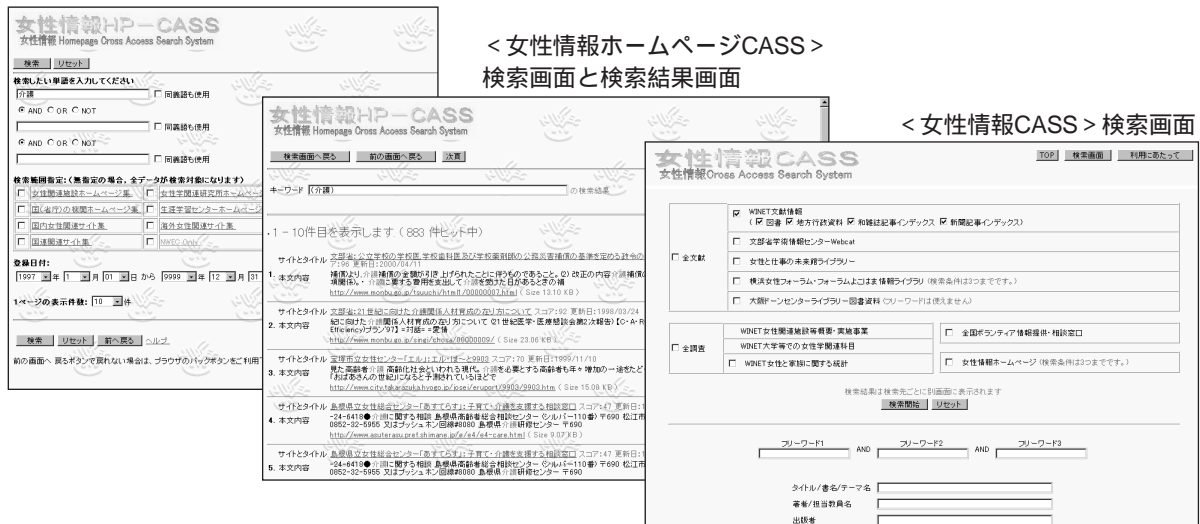 女性情報HP－CASS
女性情報 Homepage Cross Access Search System
検索 リセット
検索したい単語を入力してください
介護 同義語も使用
AND OR NOT
同義語も使用
AND OR NOT
同義語も使用
検索範囲指定:(無指定の場合、全データが検索対象になります)
女性関連施設ホームページ集 女性学関連研究所ホームページ
国(省庁)の機関ホームページ集 生涯学習センターホームページ
国内女性関連サイト集 海外女性関連サイト集
国連関連サイト集 NWEC Only
登録日付:
1997 年 1 月 01 日 から 9999 年 12 月 31
1ページの表示件数: 10 件
検索 リセット 前へ戻る ヘルプ
前の画面へ 戻るボタンで戻れない場合は、ブラウザのバックボタンをご利用下
<女性情報ホームページCASS>
検索画面と検索結果画面
女性情報HP－CASS
女性情報 Homepage Cross Access Search System
検索画面へ戻る 前の画面へ戻る 次頁
キーワード (介護) の検索結果
・1 - 10件目を表示します ( 883 件ヒット中)
サイトとタイトル 文部省:公立学校の学校医,学校歯科医及び学校薬剤師の公務災害補償の基準を定める政令の
ア:96 更新日:2000/04/11
1. 本文内容 補償より,介護補償の金額が引き上げられたことに伴うものであること。(2) 改正の内容介護補償の
項関係)。・ 介護に要する費用を支出して介護を受けた日があるときの補
http://www.monbu.go.jp/tsuuchi/html1/00000007.html ( Size 13.10 KB )
サイトとタイトル 文部省:21世紀に向けた介護関係人材育成の在り方について スコア:92 更新日:1998/03/24
2. 本文内容 紀に向けた介護関係人材育成の在り方について (21世紀医学・医療懇談会第2次報告)【C・A・R
Efficiency)プラン'97】=対話= =愛情
http://www.monbu.go.jp/singi/chosa/00000009/ ( Size 23.06 KB )
サイトとタイトル 宝塚市立女性センター「エル」:エル・ぽ～と9903 スコア:70 更新日:1999/11/10
3. 本文内容 見た高齢介護 高齢化社会といわれる現代。介護を必要とする高齢者も年々増加の一途をたど
「おばあさんの世紀」になると予測されているほどで
http://www.city.takarazuka.hyogo.jp/josei/eruport/9903/9903.htm ( Size 15.08 KB )
サイトとタイトル 島根県立女性総合センター「あすてらす」:子育て・介護を支援する相談窓口 スコア:47 更新日:1
4. 本文内容 -24-6418●介護に関する相談 島根県高齢者総合相談センター (シルバー110番) 〒690 松江市
0852-32-5955 又はプッシュホン回線#8080 島根県介護研修センター 〒690
http://www.asuterasu.pref.shimane.jp/a/e4/e4-care.html ( Size 9.07 KB )
サイトとタイトル 島根県立女性総合センター「あすてらす」:子育て・介護を支援する相談窓口 スコア:47 更新日:1
5. 本文内容 -24-6418●介護に関する相談 島根県高齢者総合相談センター (シルバー110番) 〒690 松江市
0852-32-5955 又はプッシュホン回線#8080 島根県介護研修センター 〒690
<女性情報CASS>検索画面
女性情報CASS
女性情報Cross Access Search System
TOP 検索画面 利用にあたって
全文献
WINET文献情報
( 図書 地方行政資料 和雑誌記事インデックス 新聞記事インデックス)
文部省学術情報センターWebcat
女性と仕事の未来館ライブラリー
横浜女性フォーラム・フォーラムよこはま情報ライブラリ (検索条件は3つまでです。)
大阪ドーンセンターライブラリー図書資料 (フリーワードは使えません)
全調査
WINET女性関連施設等概要・実施事業 全国ボランティア情報提供・相談窓口
WINET大学等での女性学関連科目
WINET女性と家族に関する統計 女性情報ホームページ (検索条件は3つまでです。)
検索結果は検索先ごとに別画面に表示されます
検索開始 リセット
フリーワード1 フリーワード2 フリーワード3
AND AND
タイトル/書名/テーマ名
著者/担当教員名
出版者